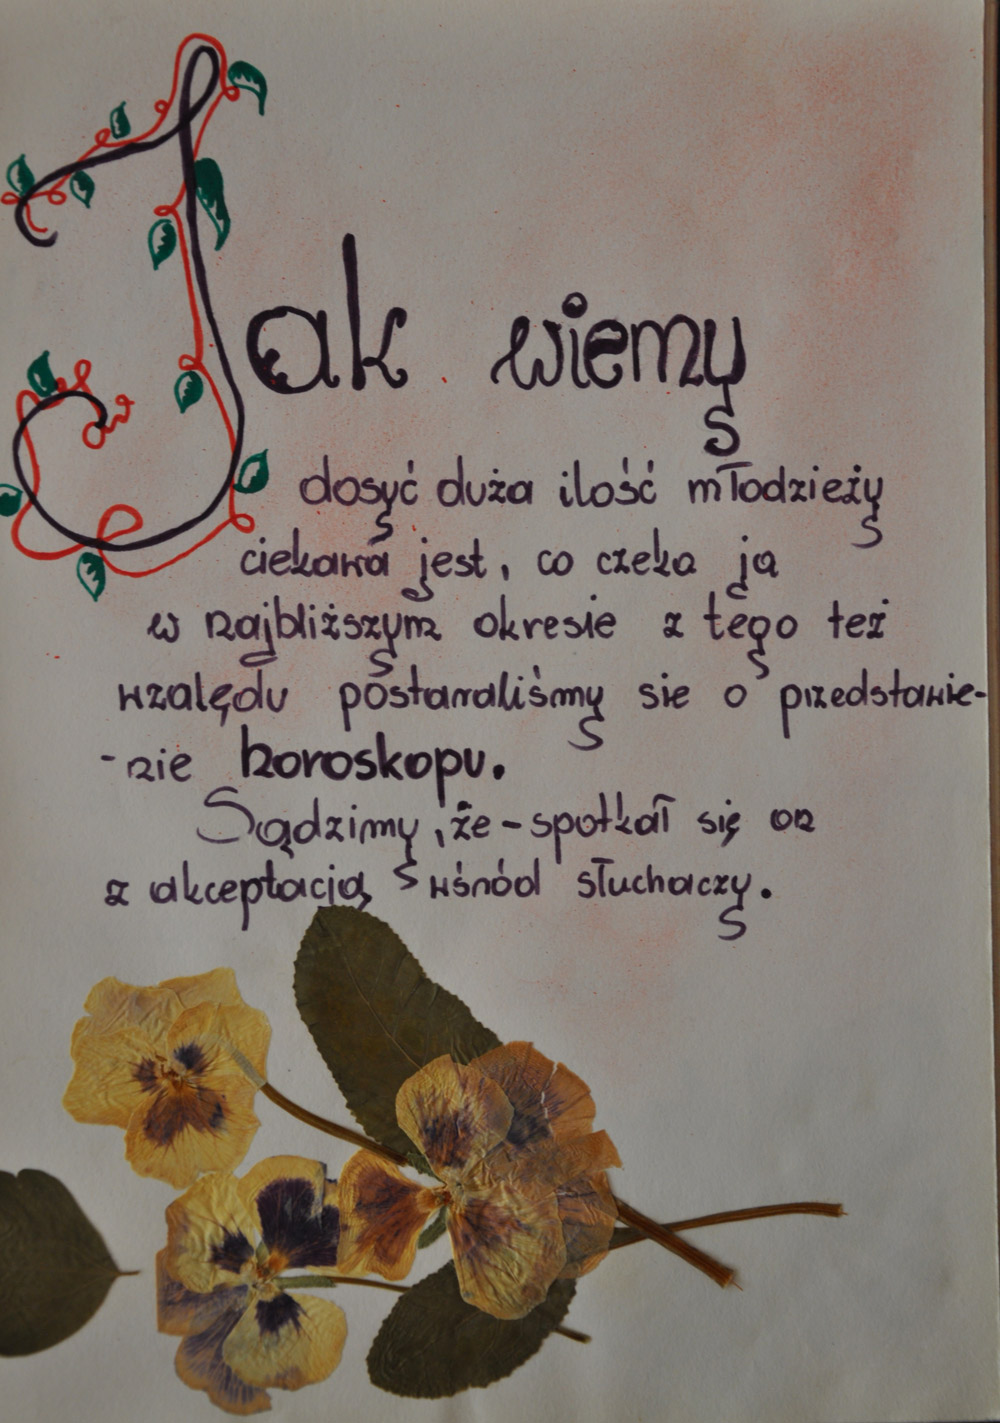 Jak wiemy
dosyć duża ilość młodzieży
ciekawa jest, co czeka ją
w najbliższym okresie z tego też
względu postaraliśmy sie o przedstawie-
-nie horoskopu.
Sądzimy, że - spotkał się on
z akceptacją wśród słuchaczy.